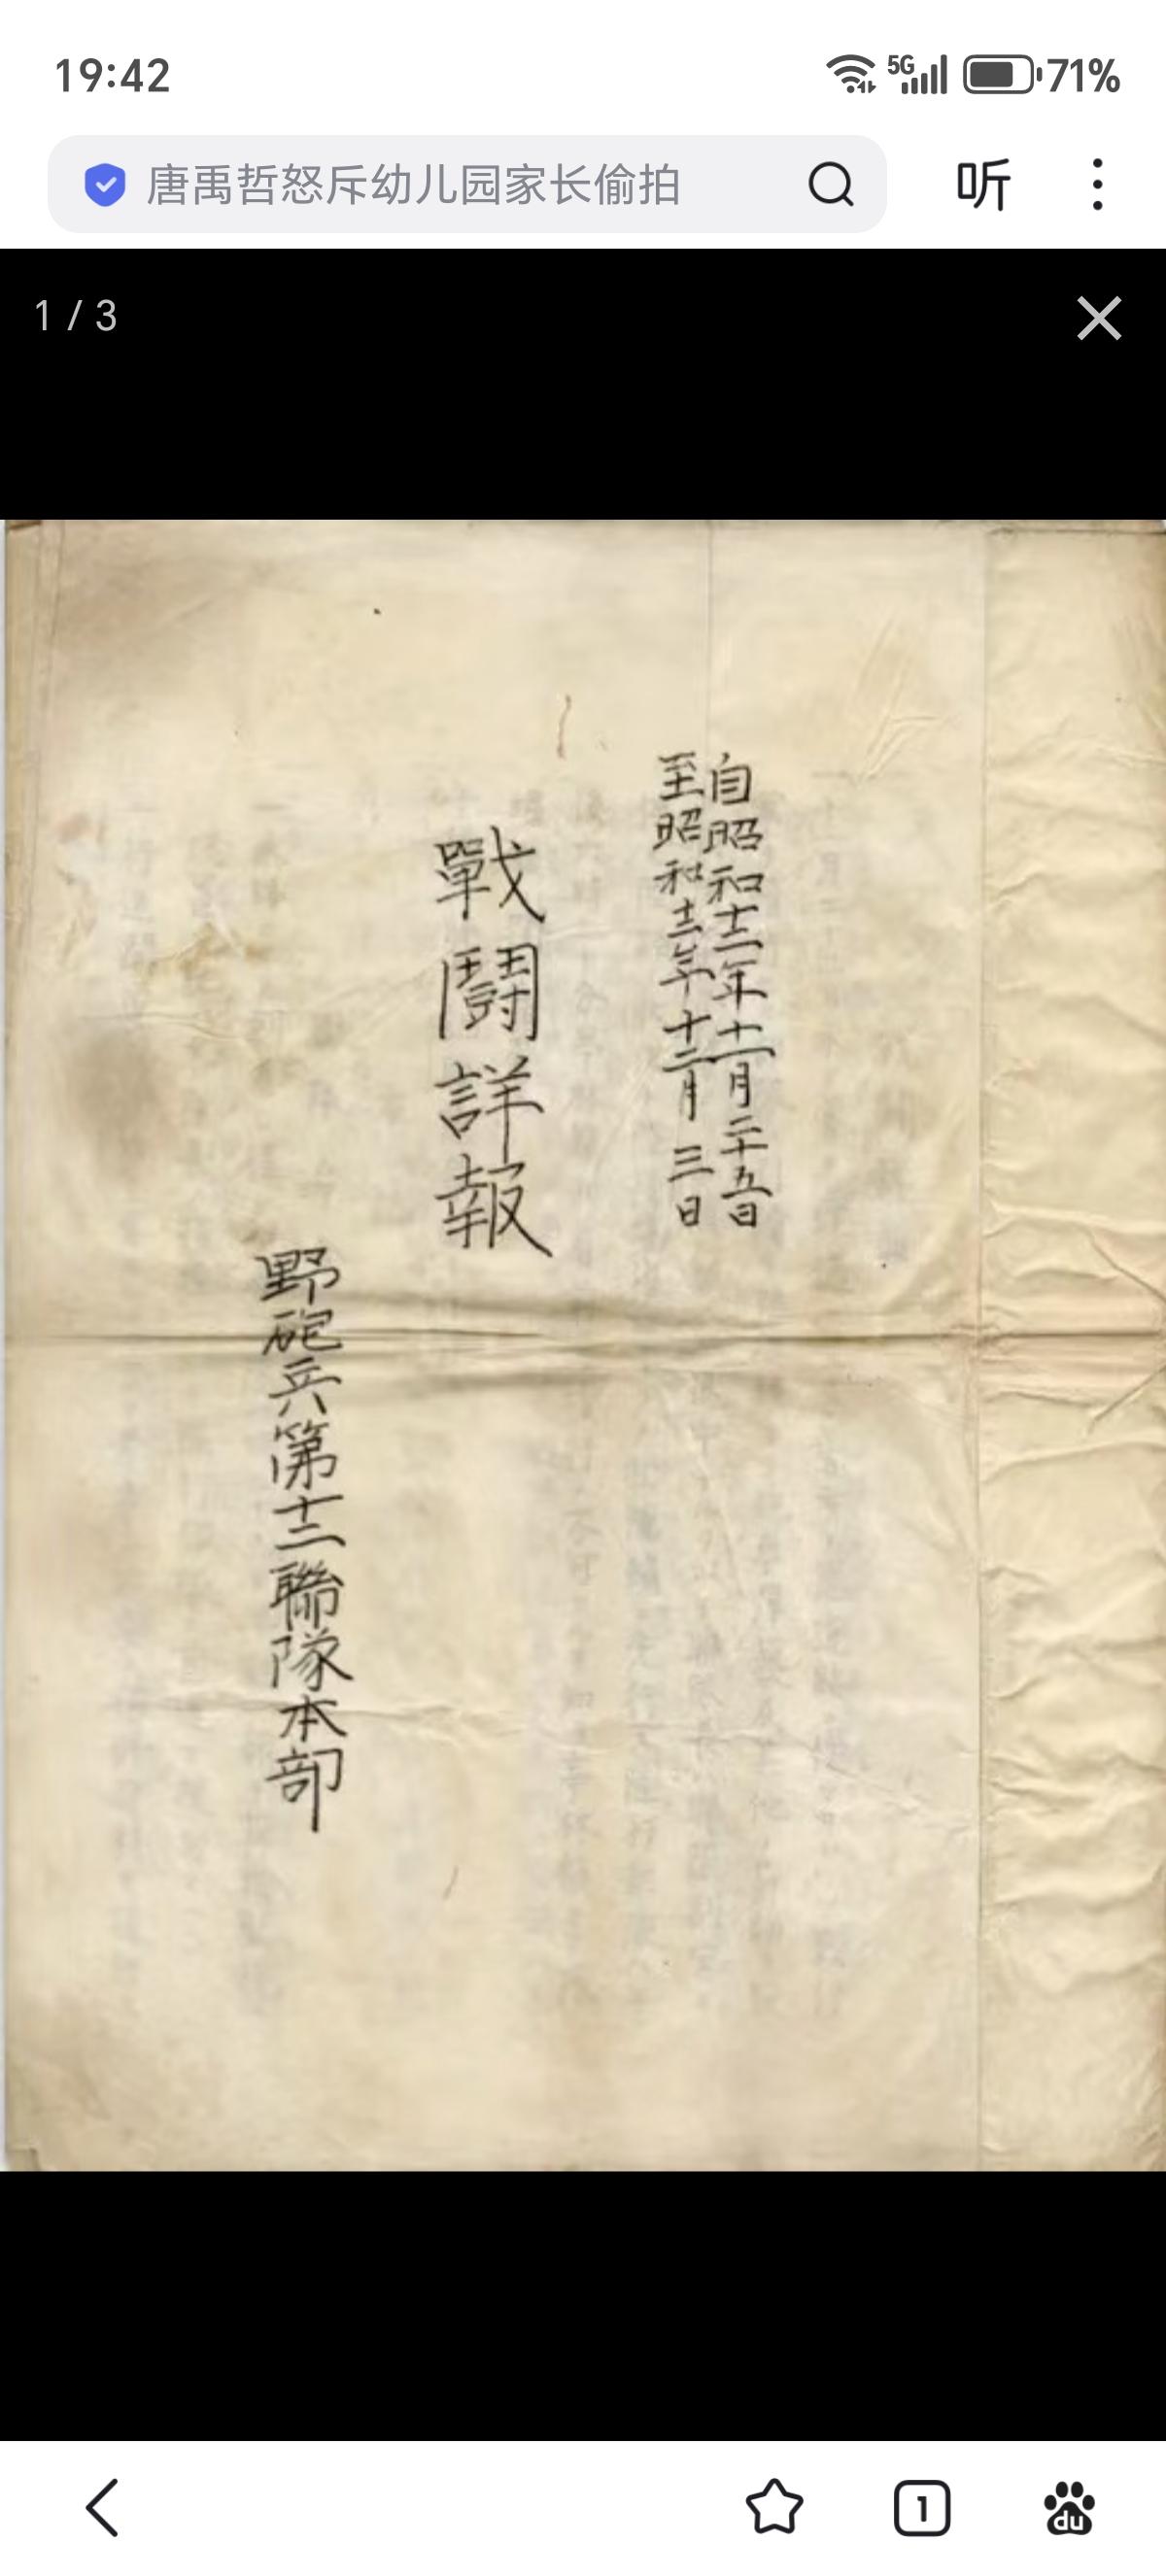 19:42
5G
71%
唐禹哲怒斥幼儿园家长偷拍
听
1 / 3
自昭和十二年十一月二十五日
至昭和十二年十二月三日
戰鬪詳報
野砲兵第十二聯隊本部
1
du